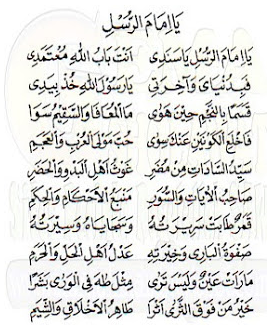 يَا اِمَامَ الرُّسْلِ
يَا اِمَامَ الرُّسْلِ يَا سَنَدِى اَنْتَ بَابُ اللهِ مُعْتَمَدِى
فَبِدُنْيَاىَ وَآخِرَتِى يَارَسُوْلَ اللهِ خُذْ بِيَدِى
قَسَمًا بِالنَّجْمِ حِيْنَ هَوٰى مَاالْمُعَافٰى وَالسَّقِيْمُ سَوَا
فَاخْلَعِ الْكَوْنَيْنِ عَنْكَ سِوٰى حُبِّ مَوْلَى الْعُرْبِ وَالْعَجَمِ
سَيِّدُ السَّادَاتِ مِنْ مُضَرٍ غَوْثُ اَهْلِ الْبَدْوِ وَالْحَضَرِ
صَاحِبُ الْاٰيَاتِ وَالسُّوَرِ مَنْبَعُ الْاَحْكَامِ وَالْحِكَمِ
قَمَرٌ طَابَتْ سَرِيْرَتُهُ وَسَجَايَاهُ وَسِيْرَتُهُ
صَفْوَةُ الْبَارِى وَخِيْرَتُهُ عَدْلُ اَهْلِ الْحِلِّ وَالْحَرَمِ
مَارَأَتْ عَيْنٌ وَلَيْسَ تَرٰى مِثْلَ طٰهٰ فِى الْوَرٰى بَشَرَا
خَيْرُ مَنْ فَوْقَ الثَّرٰى اَثَرَا طَاهِرُ الْاَخْلَاقِ وَالشِّيَمِ